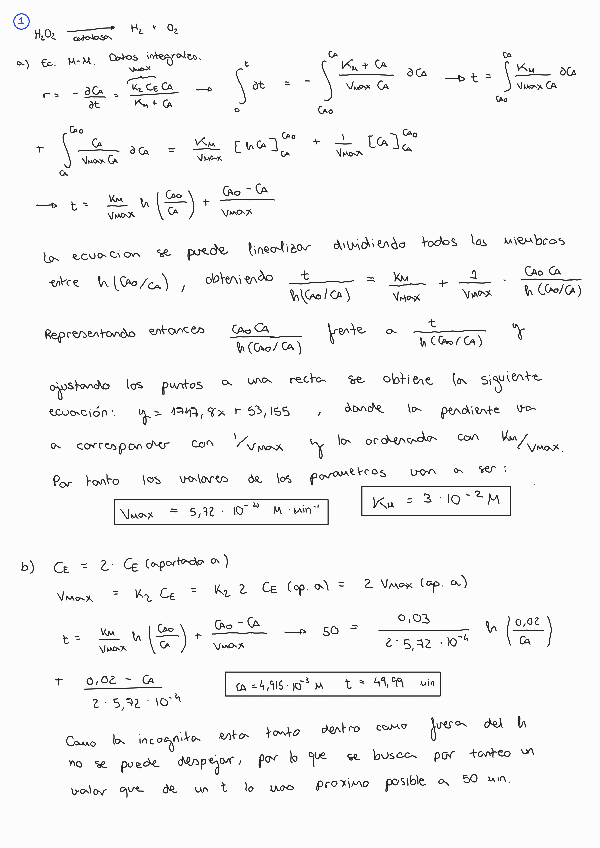 1
H2O2 → catalasa H2 + O2
a) Ec. M-M. Datos integrales.
r = - ∂CA/∂t = K2 CE CA / (KM + CA) (VMAX) → ∫₀ᵗ ∂t = - ∫_CAO^CA (KM + CA)/(VMAX CA) ∂CA → t = ∫_CAO^CA KM/(VMAX CA) ∂CA
+ ∫_CA^CAO CA/(VMAX CA) ∂CA = KM/VMAX [ln CA]_CA^CAO + 1/VMAX [CA]_CA^CAO
→ t = KM/VMAX ln (CAO/CA) + (CAO - CA)/VMAX
La ecuacion se puede linealizar dividiendo todos los miembros
entre ln (CAO/CA), obteniendo t/ln(CAO/CA) = KM/VMAX + 1/VMAX · CAO CA/ln (CAO/CA)
Representando entonces CAO CA/ln (CAO/CA) frente a t/ln (CAO/CA) y
ajustando los puntos a una recta se obtiene la siguiente
ecuación: y = 1747,8x + 53,155, donde la pendiente va
a corresponder con 1/VMAX y la ordenada con KM/VMAX.
Por tanto los valores de los parametros van a ser:
VMAX = 5,72 · 10⁻⁴ M · min⁻¹ KM = 3 · 10⁻² M
b) CE = 2 · CE (apartado a)
VMAX = K2 CE = K2 2 CE (ap. a) = 2 VMAX (ap. a)
t = KM/VMAX ln (CAO/CA) + (CAO - CA)/VMAX → 50 = 0,03/(2 · 5,72 · 10⁻⁴) ln (0,02/CA)
+ (0,02 - CA)/(2 · 5,72 · 10⁻⁴) CA = 4,915 · 10⁻³ M t = 49,99 min
Como la incognita esta tanto dentro como fuera del ln
no se puede despejar, por lo que se busca por tanteo un
valor que de un t lo mas proximo posible a 50 min.